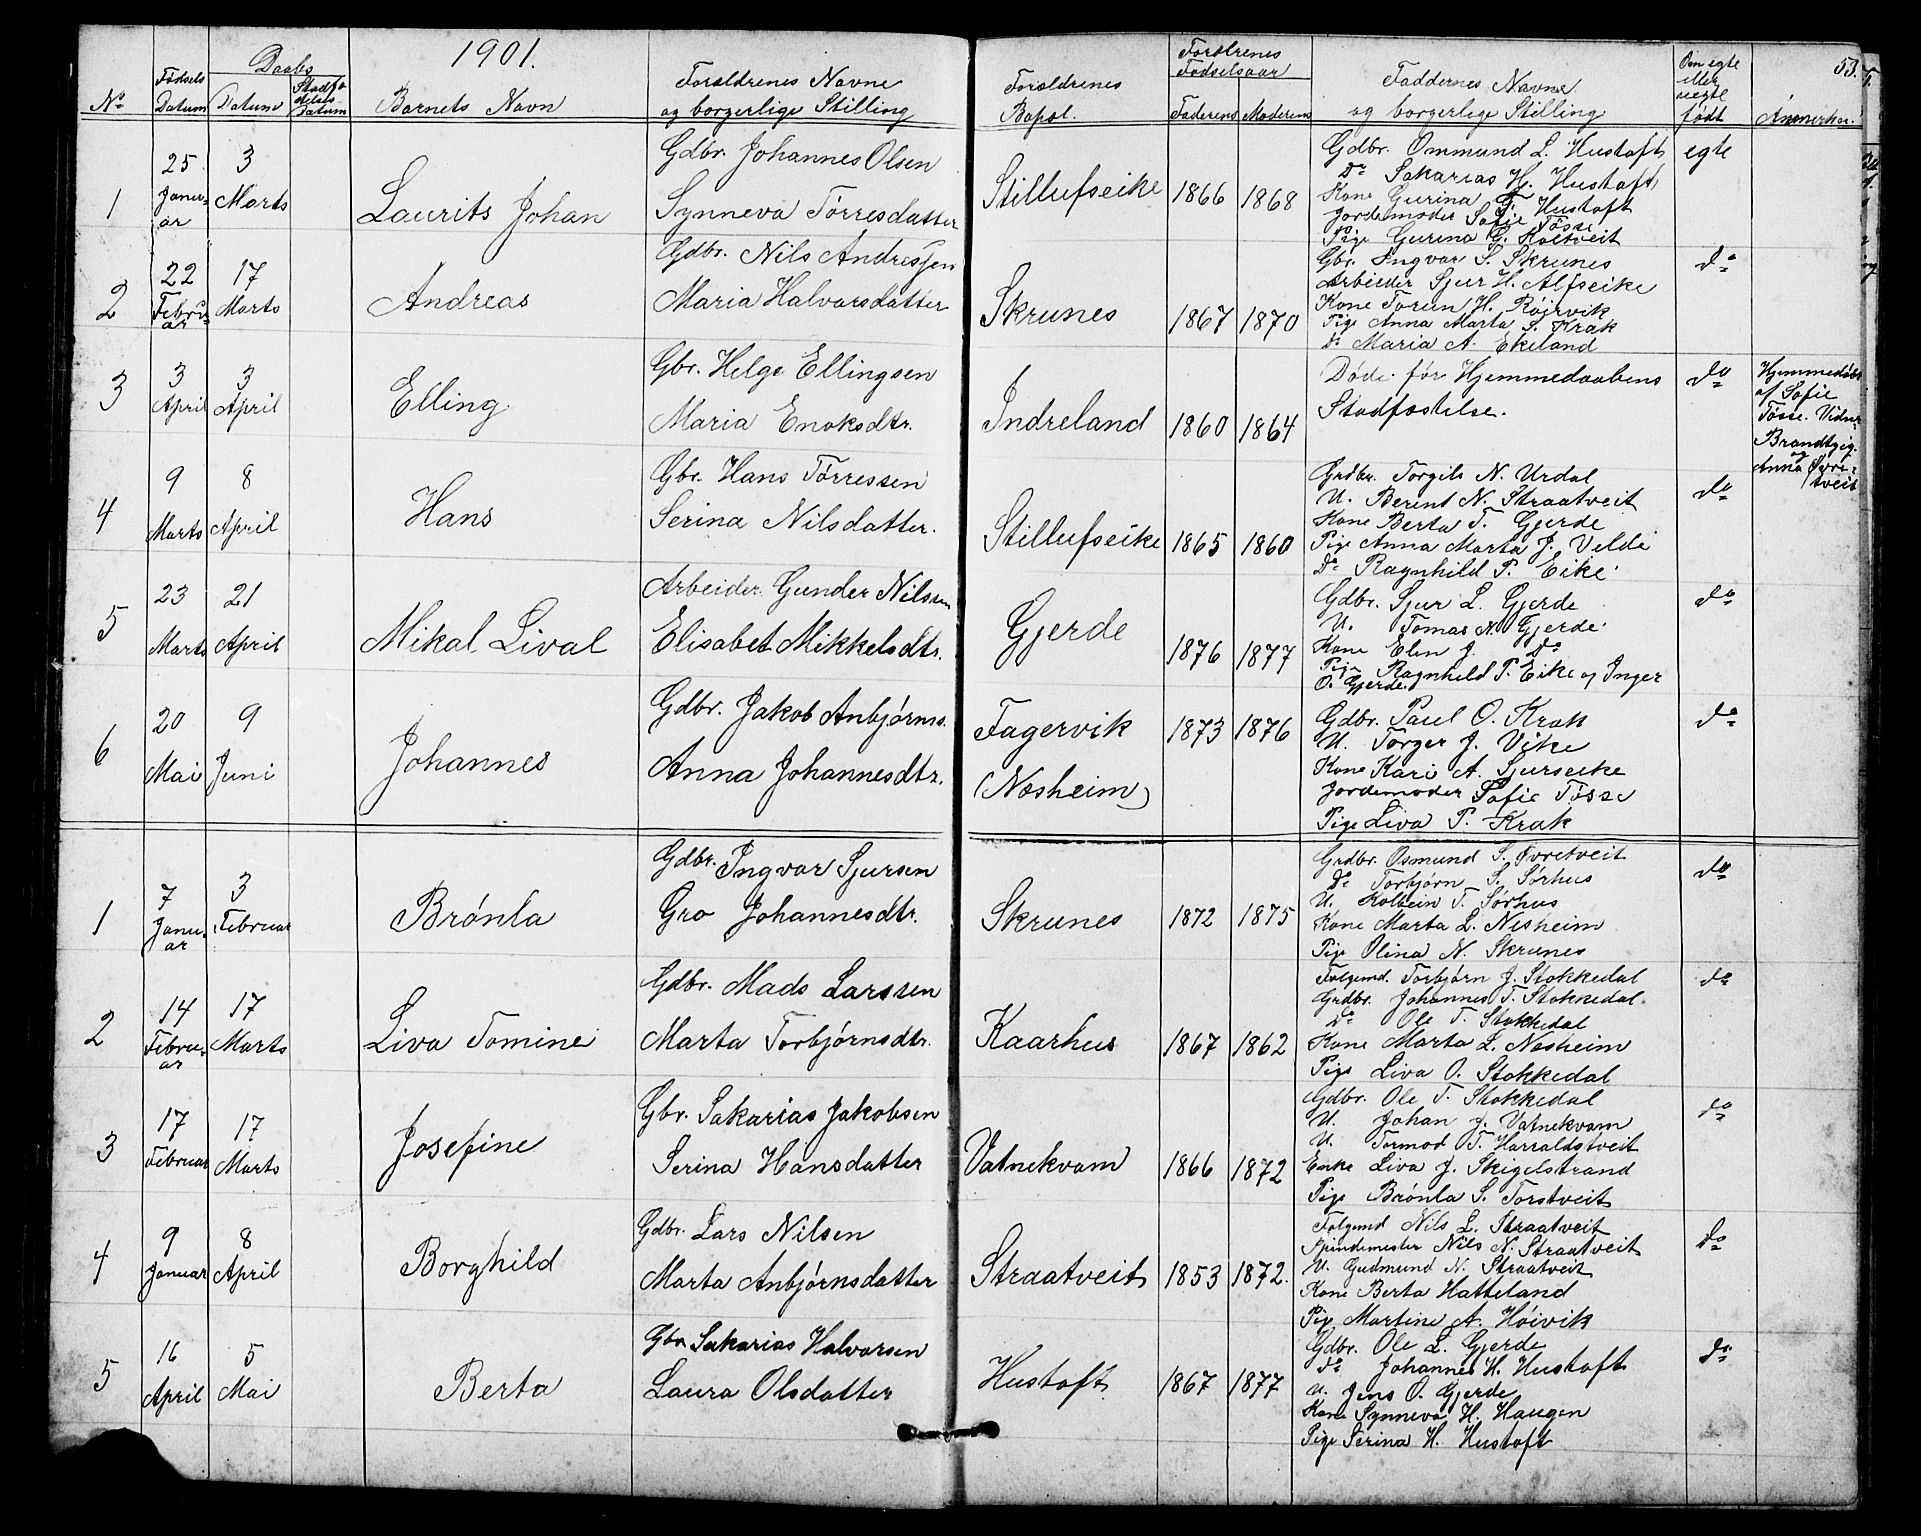 1901.
53.
No
Fødsels Datum
Daabs
Datum
Stadfæstelses Datum
Barnets Navn
Forældrenes Navne
og borgerlige Stilling
Forældrenes
Bopæl.
Forældrenes
Fødselsaar
Faderens Moderens
Faddernes Navne
og borgerlige Stilling
Om egte
eller
uegte
født
Anmerkn.
1
25 Januar
3 Marts
Laurits Johan
Gdbr. Johannes Olsen
Synneva Tørresdatter
Stillufseike 1866 1868
Gdbr. Ommund L. Hustoft
Do Sakarias H. Hustoft
Kone Gurina T. Hustoft
Jordemoder Sofie Tösse
Pige Gurina G. Holtveit
egte
2
22 Februar
17 Marts
Andreas
Gdbr. Nils Andressen
Maria Halvarsdatter
Skrunes 1867 1870
Gbr. Ingvar S. Skrunes
Arbeider Sjur H. Alfseike
Kone Torun H. Røirvik
Pige Anna Marta S. Krak
Do Maria A. Ekeland
do
3
3 April
3 April
Elling
Gbr. Helge Ellingsen
Maria Enoksdtr.
Indreland 1860 1864
Døde før Hjemmedaabens
Stadfæstelse.
do
Hjemmedøbt
af Sofie
Tösse. Vidner
og
Anna Øvre-
tveit
4
9 Marts
8 April
Hans
Gbr. Hans Tørressen
Serina Nilsdatter.
Stillufseike 1865 1860
Grdbr. Torgils N. Urdal
U. Berent N. Straatveit
Kone Berta T. Gjerde
Pige Anna Marta J. Velde
Do Ragnhild P. Eike
do
5
23 Marts
21 April
Mikal Lival
Arbeider Gunder Nilssen
Elisabet Mikkelsdtr.
Gjerde 1876 1877
Gdbr. Sjur L. Gjerde
U. Tomas N. Gjerde
Kone Elen J. Do
Pige Ragnhild P. Eike og Inger
O. Gjerde.
do
6
20 Mai
9 Juni
Johannes
Gdbr. Jakob Anbjørns.
Anna Johannesdtr.
Fagervik 1873 1876
(Næsheim)
Gdbr. Paul O. Krak
U. Torger J. Vike
Kone Kari A. Sjurseike
Jordemoder Sofie Tösse
Pige Liva P. Krak
do
1
7 Januar
3 Februar
Brønla
Gdbr. Ingvar Sjursen
Gro Johannesdtr.
Skrunes 1872 1875
Grdbr. Osmund S. Øvretveit
Do Torbjørn S. Sørhus
U. Kolbein T. Sørhus
Kone Marta L. Nesheim
Pige Olina N. Skrunes
do
2
14 Februar
17 Marts
Liva Tomine
Gdbr. Mads Larssen
Marta Torbjørnsdtr.
Kaarhus 1867 1862
Følgemd. Torbjørn J. Stokkedal
Grdbr. Johannes T. Stokkedal
Do Ole T. Stokkedal
Kone Marta L. Næsheim
Pige Liva O. Stokkedal
do
3
17 Februar
17 Marts
Josefine
Gbr. Sakarias Jakobsen
Serina Hansdatter
Vatnekvam 1866 1872
Gdbr. Ole T. Stokkedal
U. Johan J. Vatnekvam
U. Tormod T. Harraldstveit
Enke Liva J. Skigelstrand
Pige Brønla S. Torstveit
do
4
9 Januar
8 April
Borghild
Gdbr. Lars Nilsen
Marta Anbjørnsdatter
Straatveit 1853 1872.
Følgemd Nils L. Straatveit
Spindemester Nils N. Straatveit
U. Gudmund N. Straatveit
Kone Berta Hatteland
Pige Martine A. Høivik
Do
5
16 April
5 Mai
Berta
Gbr Sakarias Halvorsen
Laura Olsdatter
Hustoft 1867 1877
Gdbr. Ole L. Gjerde
do Johannes H. Hustoft
U. Jens O. Gjerde
Kone Synneva H. Haugen
Pige Serina H. Hustoft
do